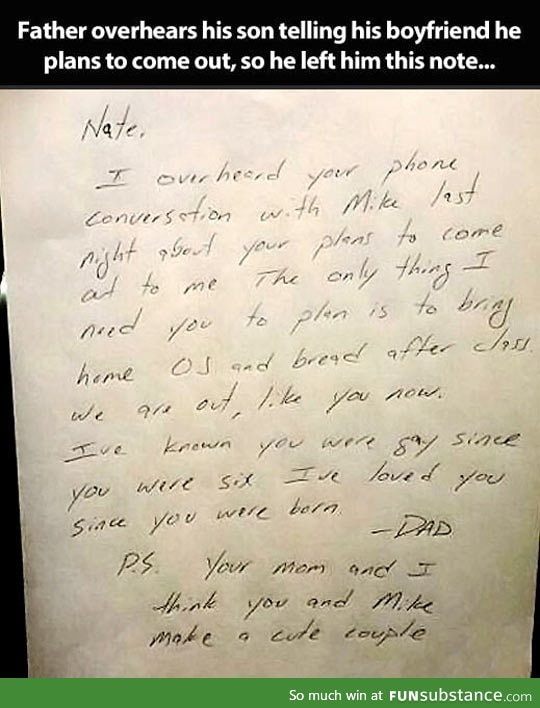 Father overhears his son telling his boyfriend he
plans to come out, so he left him this note...
Nate,
I overheard your phone
conversation with Mike last
night about your plans to come
out to me The only thing I
need you to plan is to bring
home OJ and bread after class.
we are out, like you now.
I've known you were gay since
you were six I've loved you
since you were born.
-DAD
P.S. Your mom and I
think you and Mike
make a cute couple
So much win at FUNsubstance.com